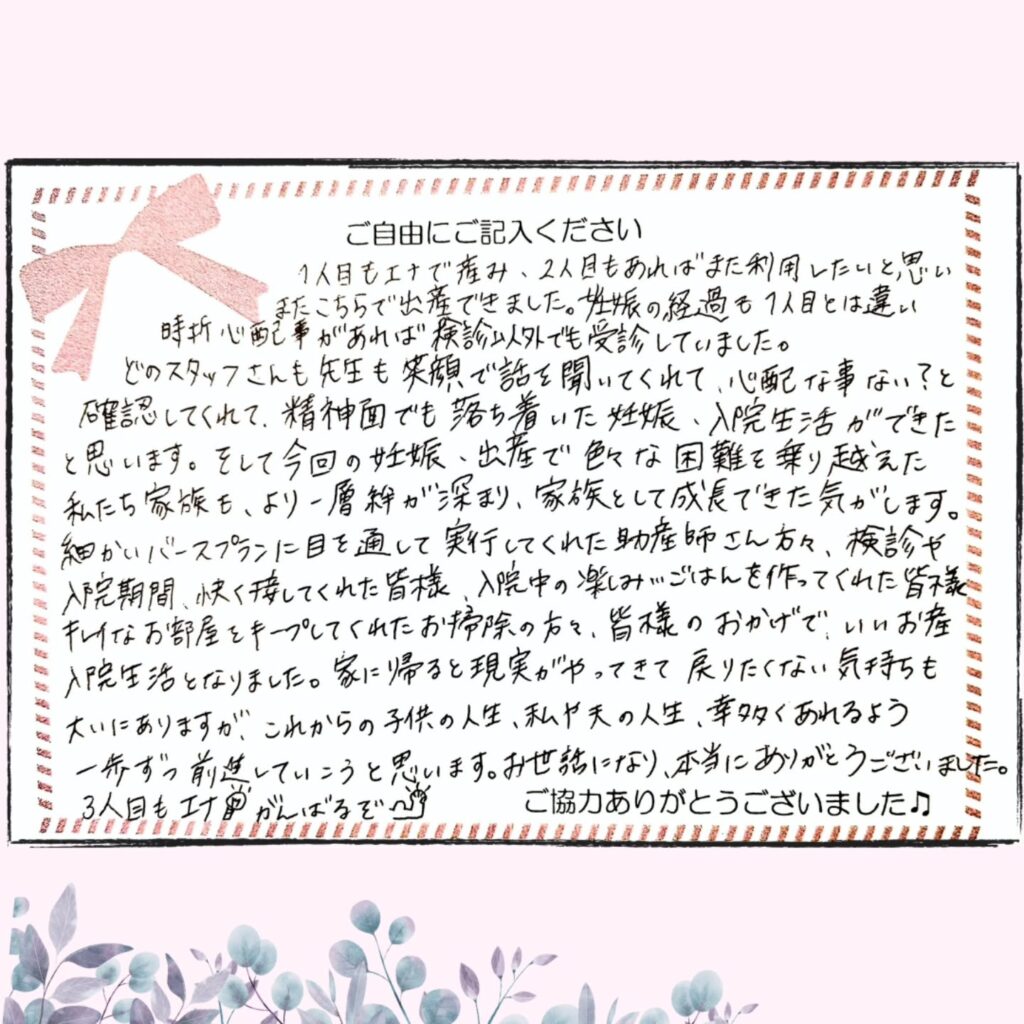 ご自由にご記入ください
1人目もエナで産み、2人目もあればまた利用したいと思い
またこちらで出産できました。妊娠の経過も1人目とは違い
時折心配事があれば検診以外でも受診していました。
どのスタッフさんも先生も笑顔で話を聞いてくれて、心配な事ない?と
確認してくれて、精神面でも落ち着いた妊娠、入院生活ができた
と思います。そして今回の妊娠、出産で色々な困難を乗り越えた
私たち家族も、より一層絆が深まり、家族として成長できた気がします。
細かいバースプランに目を通して実行してくれた助産師さん方々、検診や
入院期間、快く接してくれた皆様、入院中の楽しみ…ごはんを作ってくれた皆様
キレイなお部屋をキープしてくれたお掃除の方々、皆様のおかげで、いいお産
入院生活となりました。家に帰ると現実がやってきて戻りたくない気持ちも
大いにありますが、これからの子供の人生、私や夫の人生、幸多くあれるよう
一歩ずつ前進していこうと思います。お世話になり、本当にありがとうございました。
3人目もエナ がんばるぞ
ご協力ありがとうございました♫